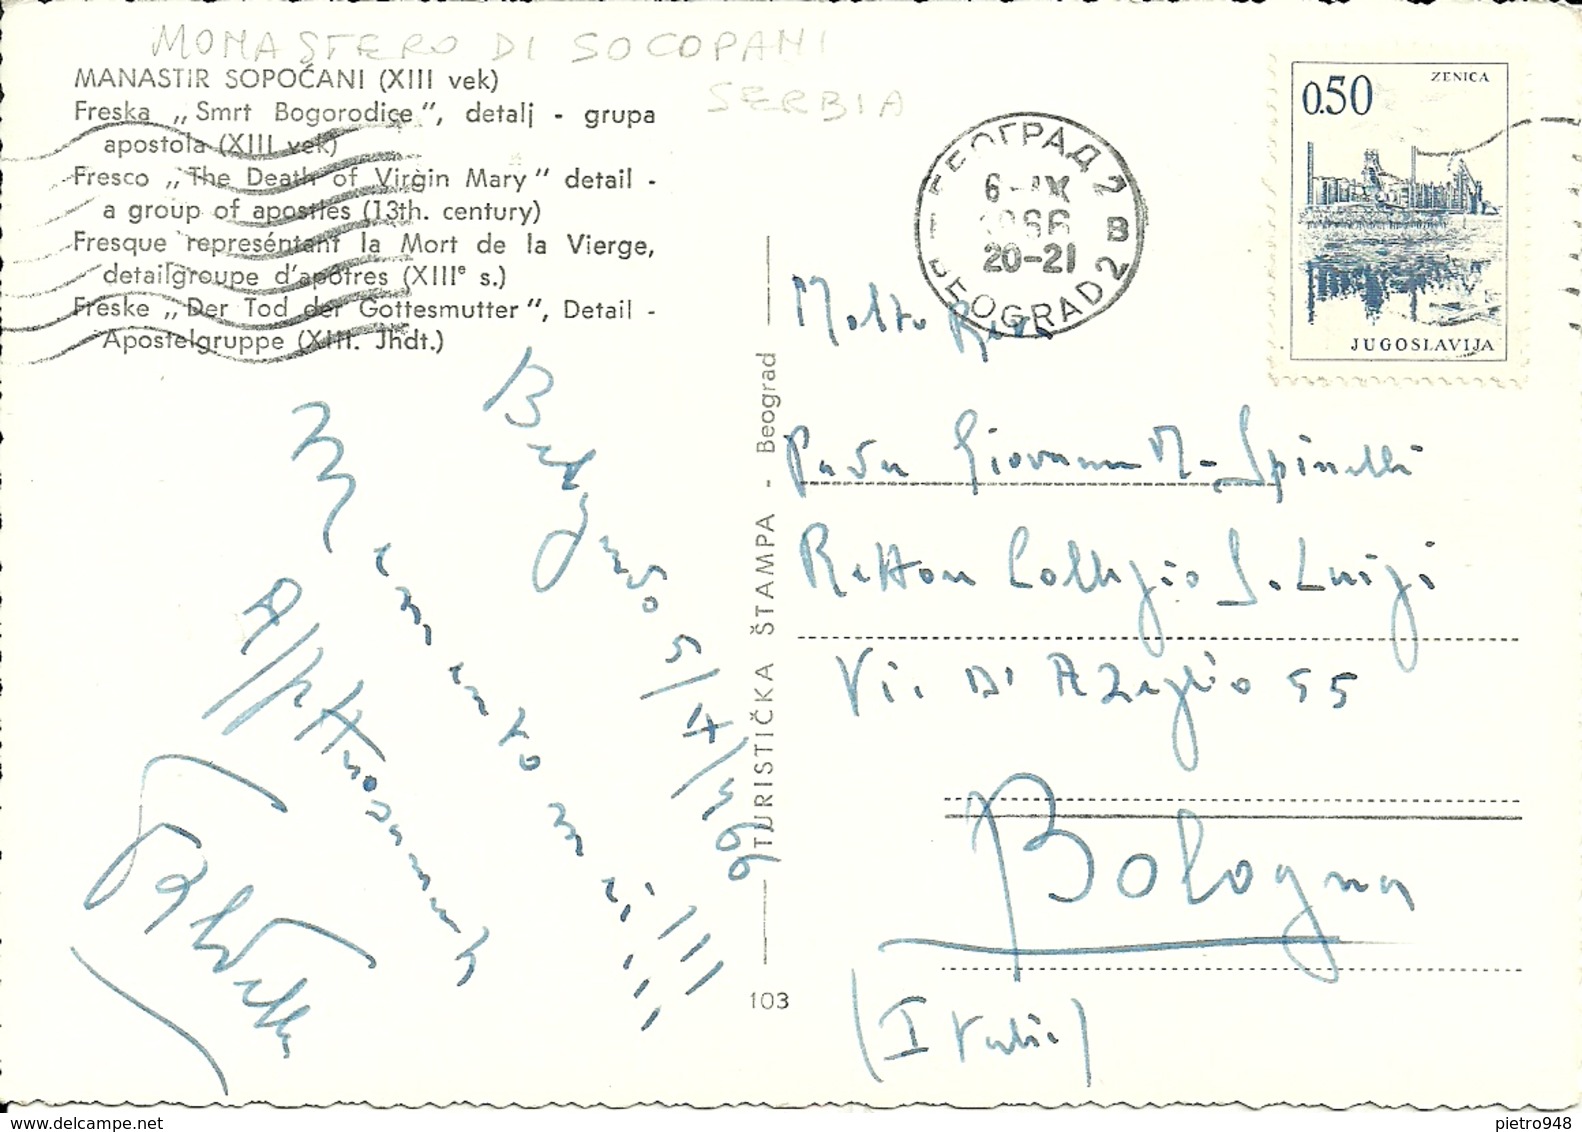 MONASTERO DI SOCOPANI
SERBIA
MANASTIR SOPOĆANI (XIII vek)
Freska „Smrt Bogorodice", detalj - grupa
apostola (XIII vek)
Fresco „The Death of Virgin Mary" detail -
a group of apostles (13th. century)
Fresque représéntant la Mort de la Vierge,
detailgroupe d'apôtres (XIIIᵉ s.)
Freske „Der Tod der Gottesmutter", Detail -
Apostelgruppe (XIII. Jhdt.)
БЕОГРАД 2
6-IX
1966
20-21
B
BEOGRAD 2
0.50
ZENICA
JUGOSLAVIJA
Belgrado 5/IX/966
TURISTIČKA ŠTAMPA - Beograd
103
Molto Rev.
Padre Giovanni M. Spinelli
Rettore Collegio S. Luigi
Via D'Azeglio 55
Bologna
(Italia)
pietro948